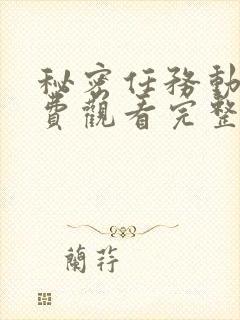 秘密任務動
費觀看完整
蘭荇